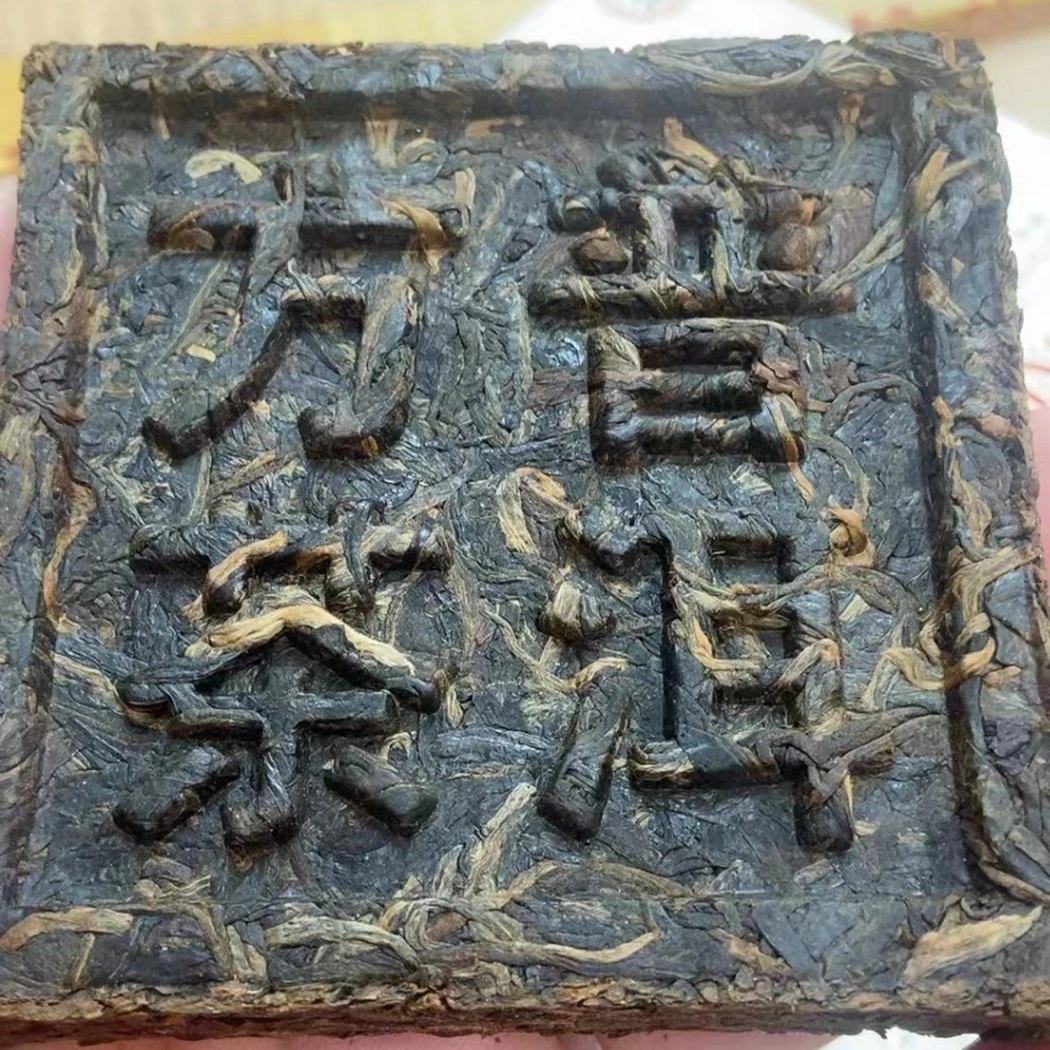 普洱
方茶